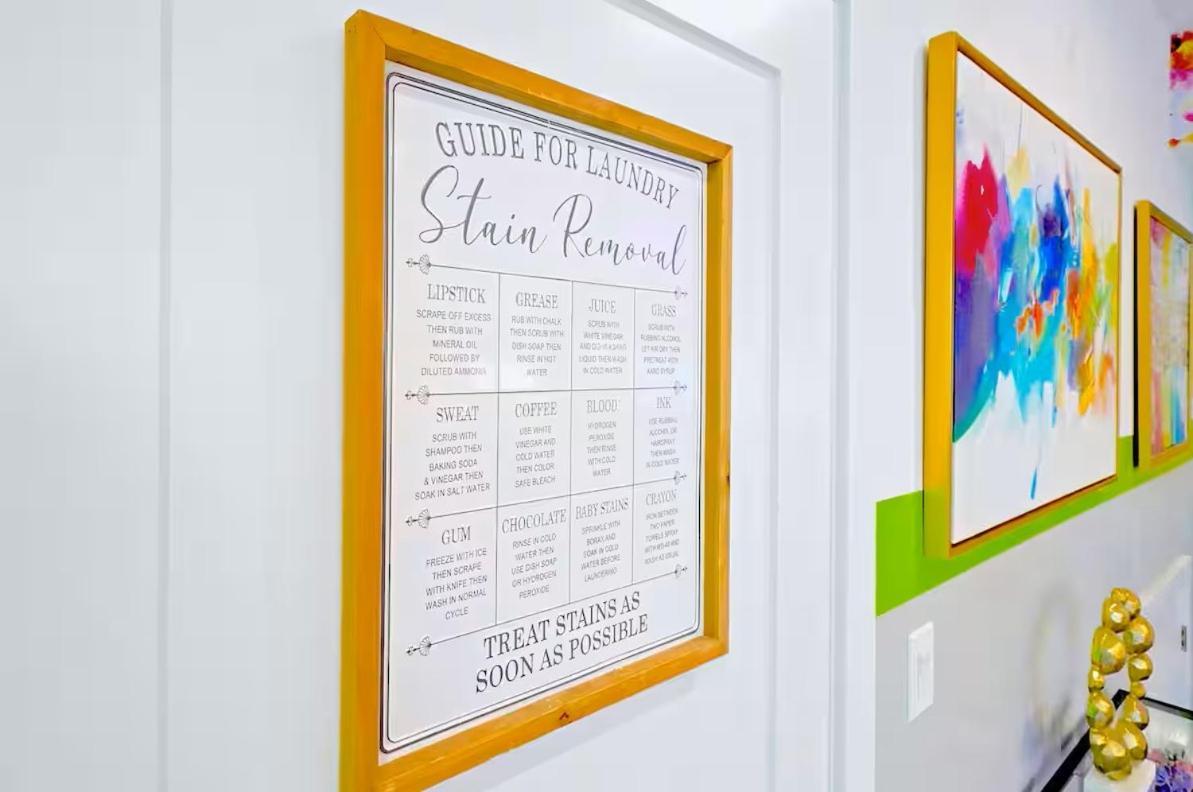 GUIDE FOR LAUNDRY
Stain Removal
LIPSTICK
SCRAPE OFF EXCESS
THEN RUB WITH
MINERAL OIL
FOLLOWED BY
DILUTED AMMONIA
GREASE
RUB WITH CHALK
THEN SCRUB WITH
DISH SOAP THEN
RINSE IN HOT
WATER
JUICE
SCRUB WITH
WHITE VINEGAR
AND
LIQUID THEN WASH
IN COLD WATER
GRASS
SCRUB WITH
RUBBING ALCOHOL
LET AIR DRY THEN
PRETREAT WITH
KARO SYRUP
SWEAT
SCRUB WITH
SHAMPOO THEN
BAKING SODA
& VINEGAR THEN
SOAK IN SALT WATER
COFFEE
USE WHITE
VINEGAR AND
COLD WATER
THEN COLOR
SAFE BLEACH
BLOOD
HYDROGEN
PEROXIDE
THEN RINSE
WITH COLD
WATER
INK
USE RUBBING
ALCOHOL OR
HAIRSPRAY
THEN WASH
IN COLD WATER
GUM
FREEZE WITH ICE
THEN SCRAPE
WITH KNIFE THEN
WASH IN NORMAL
CYCLE
CHOCOLATE
RINSE IN COLD
WATER THEN
USE DISH SOAP
OR HYDROGEN
PEROXIDE
BABY STAINS
SPRINKLE WITH
BORAX AND
SOAK IN COLD
WATER BEFORE
LAUNDERING
CRAYON
IRON BETWEEN
TWO PAPER
TOWELS SPRAY
WITH WD-40 AND
WASH AS USUAL
TREAT STAINS AS
SOON AS POSSIBLE